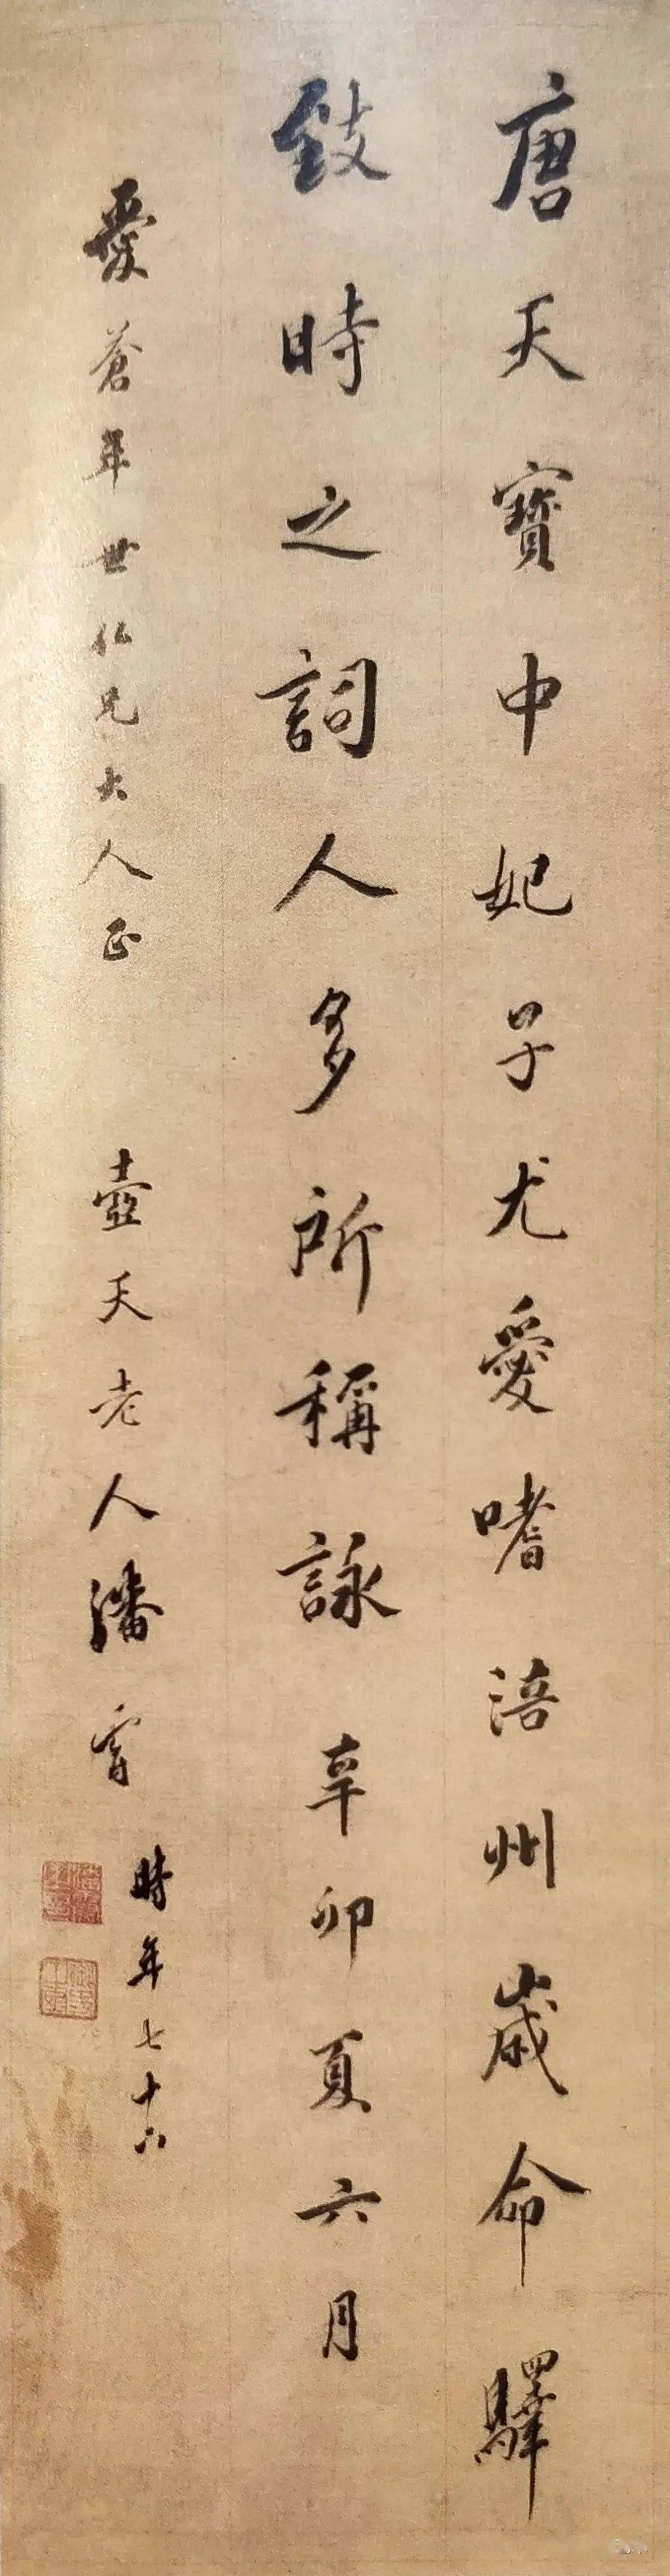 唐天寳中妃子尤愛嗜涪州歲命驛
致時之詞人多所稱詠辛卯夏六月
愛蒼年世仁兄大人正
壺天老人潘霨
時年七十六